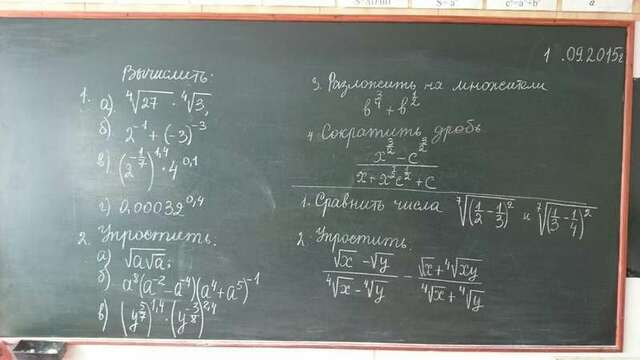 1 .09.2015г
Вычислить:
1. а) ⁴√27 · ⁴√3;
б) 2⁻¹ + (-3)⁻³
в) (2^(-1/7))^1,4 · 4^0,1
г) 0,00032^0,4
2. Упростить:
а) √(a√a);
б) a⁸(a⁻² - a⁻⁴)(a⁴ + a⁵)⁻¹
в) (y^(5/7))^1,4 · (y^(3/8))^2,4
3. Разложить на множители
b^(3/4) + b^(1/2)
4. Сократить дробь
(x^(3/2) - c^(3/2))/(x + x^(1/2)c^(1/2) + c)
1. Сравнить числа ⁷√((1/2 - 1/3)²) и ⁷√((1/3 - 1/4)²)
2. Упростить:
(√x - √y)/(⁴√x - ⁴√y) - (√x + ⁴√(xy))/(⁴√x + ⁴√y)